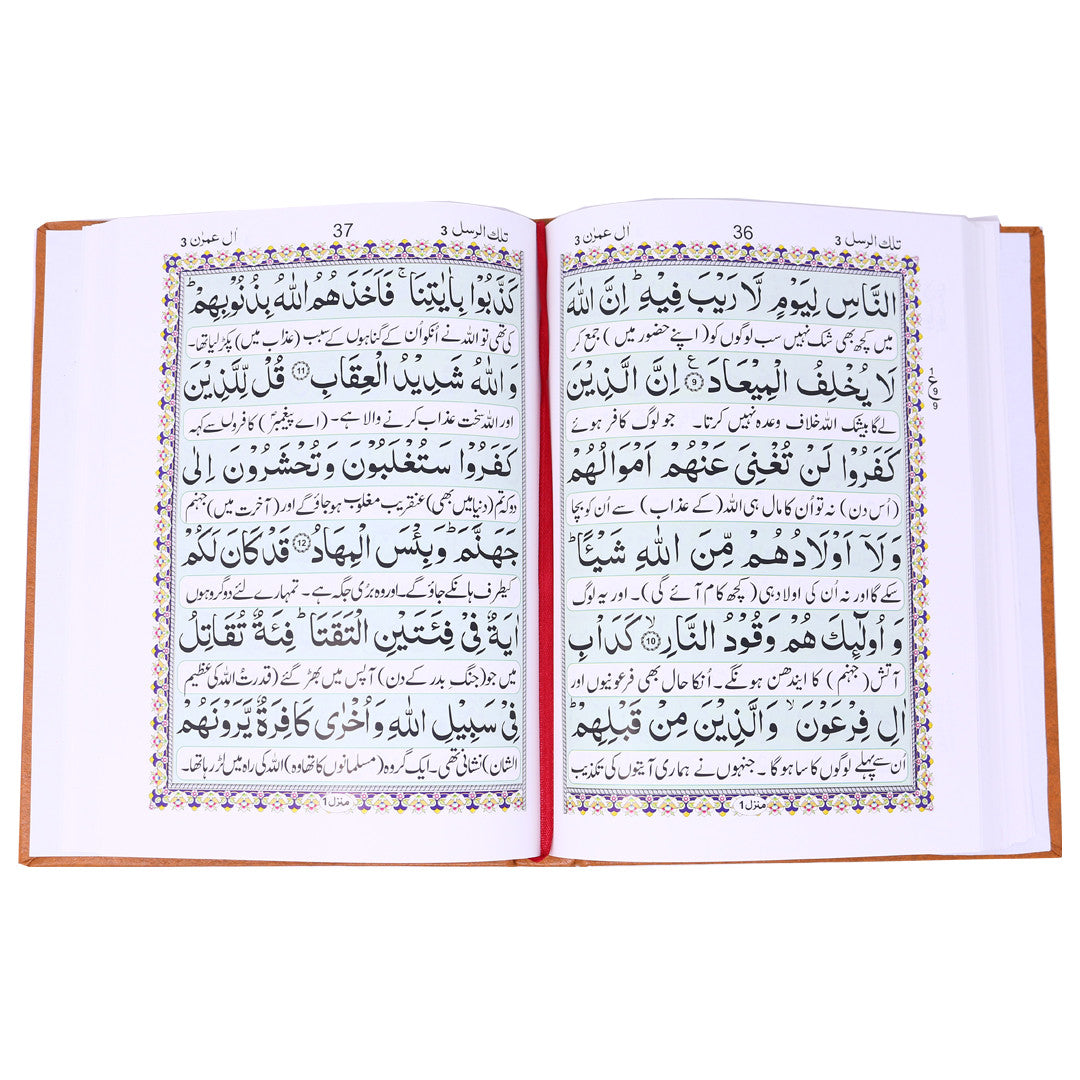 تلك الرسل 3
36
اٰل عمرٰن 3
النَّاسِ لِيَوۡمٍ لَّا رَيۡبَ فِيۡهِ ؕ اِنَّ اللّٰهَ
میں کچھ بھی شک نہیں سب لوگوں کو (اپنے حضور میں) جمع کر
لَا يُخۡلِفُ الۡمِيۡعَادَ ۹ ع اِنَّ الَّذِيۡنَ
لے گا بیشک اللہ خلاف وعدہ نہیں کرتا۔ جو لوگ کافر ہوئے
كَفَرُوۡا لَنۡ تُغۡنِىَ عَنۡهُمۡ اَمۡوَالُهُمۡ
(اُس دن) نہ تو اُن کا مال ہی اللہ (کے عذاب) سے اُن کو بچا
وَلَاۤ اَوۡلَادُهُمۡ مِّنَ اللّٰهِ شَيۡـًٔـا ؕ
سکے گا اور نہ اُن کی اولاد ہی (کچھ کام آئے گی)۔ اور یہ لوگ
وَ اُولٰٓٮِٕكَ هُمۡ وَقُوۡدُ النَّارِ ۙ 10 كَدَاۡبِ
آتش (جہنم) کا ایندھن ہونگے۔ اُنکا حال بھی فرعونیوں اور
اٰلِ فِرۡعَوۡنَ ۙ وَالَّذِيۡنَ مِنۡ قَبۡلِهِمۡ ؕ
اُن سے پہلے لوگوں کا سا ہوگا۔ جنہوں نے ہماری آیتوں کی تکذیب
منزل 1
1
ع
9
9
تلك الرسل 3
37
اٰل عمرٰن 3
كَذَّبُوۡا بِاٰيٰتِنَا ۚ فَاَخَذَهُمُ اللّٰهُ بِذُنُوۡبِهِمۡ ؕ
کی تھی تو اللہ نے اُنکو اُن کے گناہوں کے سبب (عذاب میں) پکڑ لیا تھا۔
وَاللّٰهُ شَدِيۡدُ الۡعِقَابِ 11 قُلۡ لِّلَّذِيۡنَ
اور اللہ سخت عذاب کرنے والا ہے۔ (اے پیغمبرؐ) کافروں سے کہہ
كَفَرُوۡا سَتُغۡلَبُوۡنَ وَتُحۡشَرُوۡنَ اِلٰى
دو کہ تم (دنیا میں بھی) عنقریب مغلوب ہو جاؤ گے اور (آخرت میں) جہنم
جَهَنَّمَ ؕ وَبِئۡسَ الۡمِهَادُ 12 قَدۡ كَانَ لَكُمۡ
کیطرف ہانکے جاؤ گے۔ اور وہ بڑی جگہ ہے۔ تمہارے لئے دو گروہوں
اٰيَةٌ فِىۡ فِئَتَيۡنِ الۡتَقَتَا ؕ فِئَةٌ تُقَاتِلُ
میں جو (جنگِ بدر کے دن) آپس میں بھڑ گئے (قدرتُ اللہ کی عظیم
فِىۡ سَبِيۡلِ اللّٰهِ وَاُخۡرٰى كَافِرَةٌ يَّرَوۡنَهُمۡ
الشان) نشانی تھی۔ ایک گروہ (مسلمانوں کا تھا وہ) اللہ کی راہ میں لڑ رہا تھا۔
منزل 1